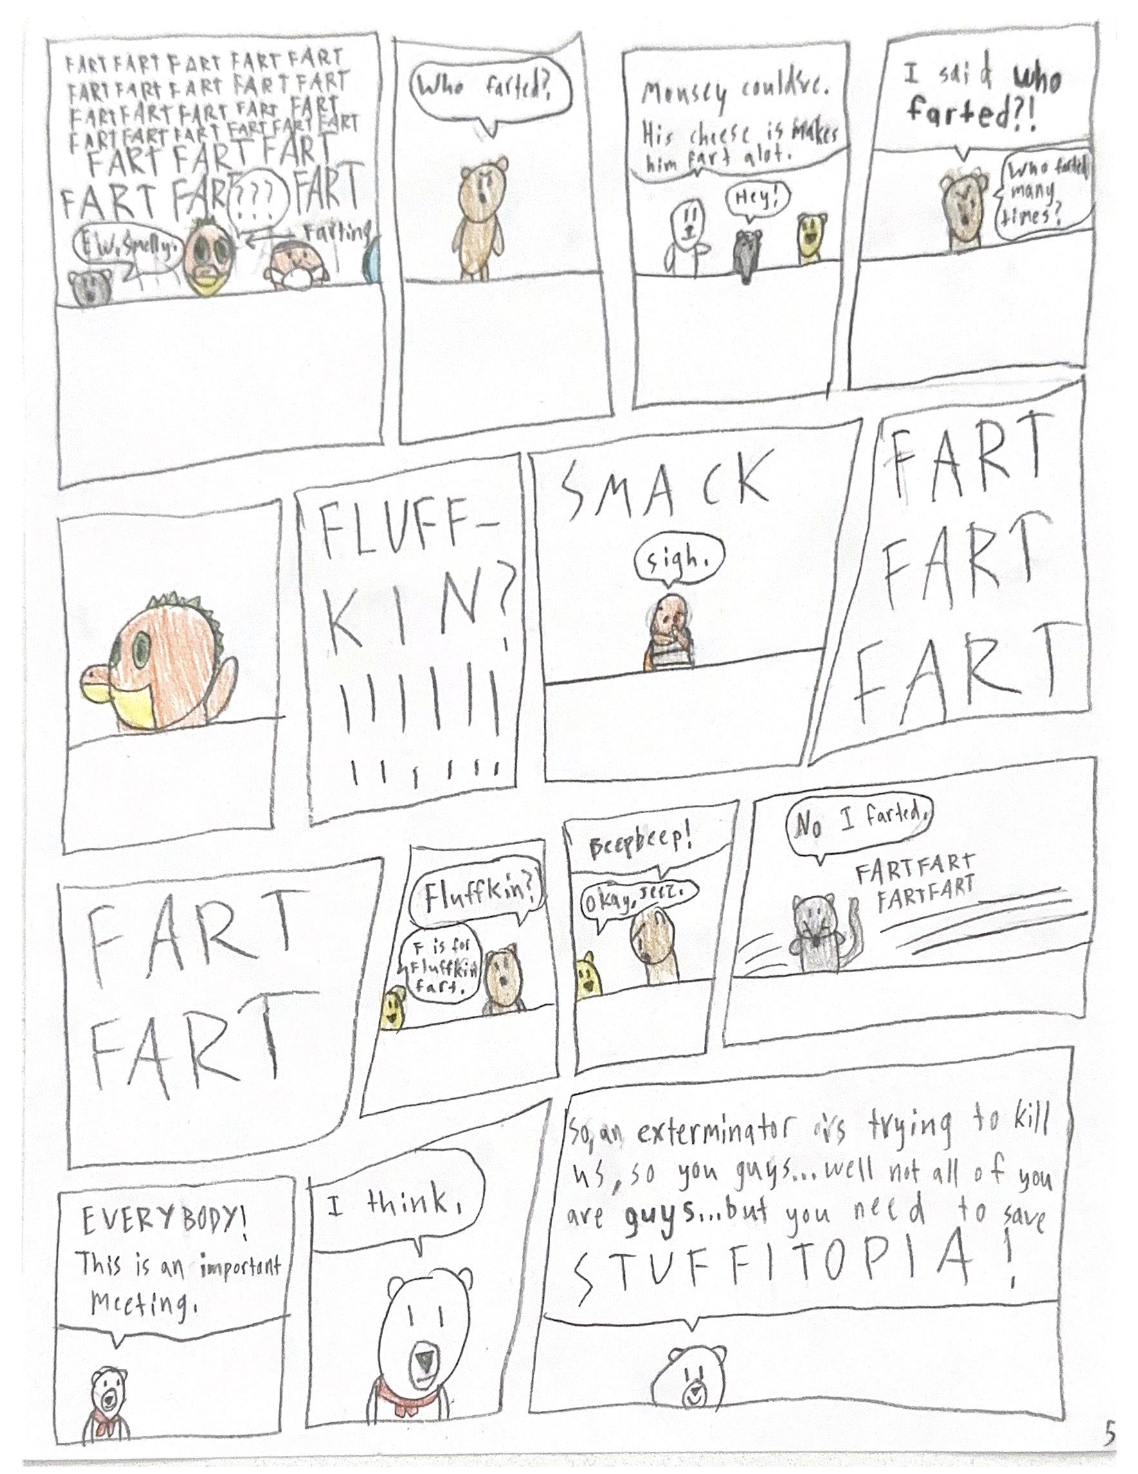 FART FART FART FART FART
FART FART FART FART FART
FART FART FART FART FART
FART FART FART FART FART FART
FART FART FART
FART FART FART
???
...
EW, smelly.
Farting
Who farted?
Mousey could've.
His cheese is makes
him fart alot.
Hey!
I said who
farted?!
Who farted
many
times?
FLUFF-
KIN?
!!!!!!
SMACK
sigh.
FART
FART
FART
FART
FART
Fluffkin?
F is for
Fluffkin
fart.
Beepbeep!
Okay, jeez.
No I farted.
FARTFART
FARTFART
EVERYBODY!
This is an important
Meeting.
I think.
So, an exterminator is trying to kill
us, so you guys...well not all of you
are guys...but you need to save
STUFFITOPIA!
5